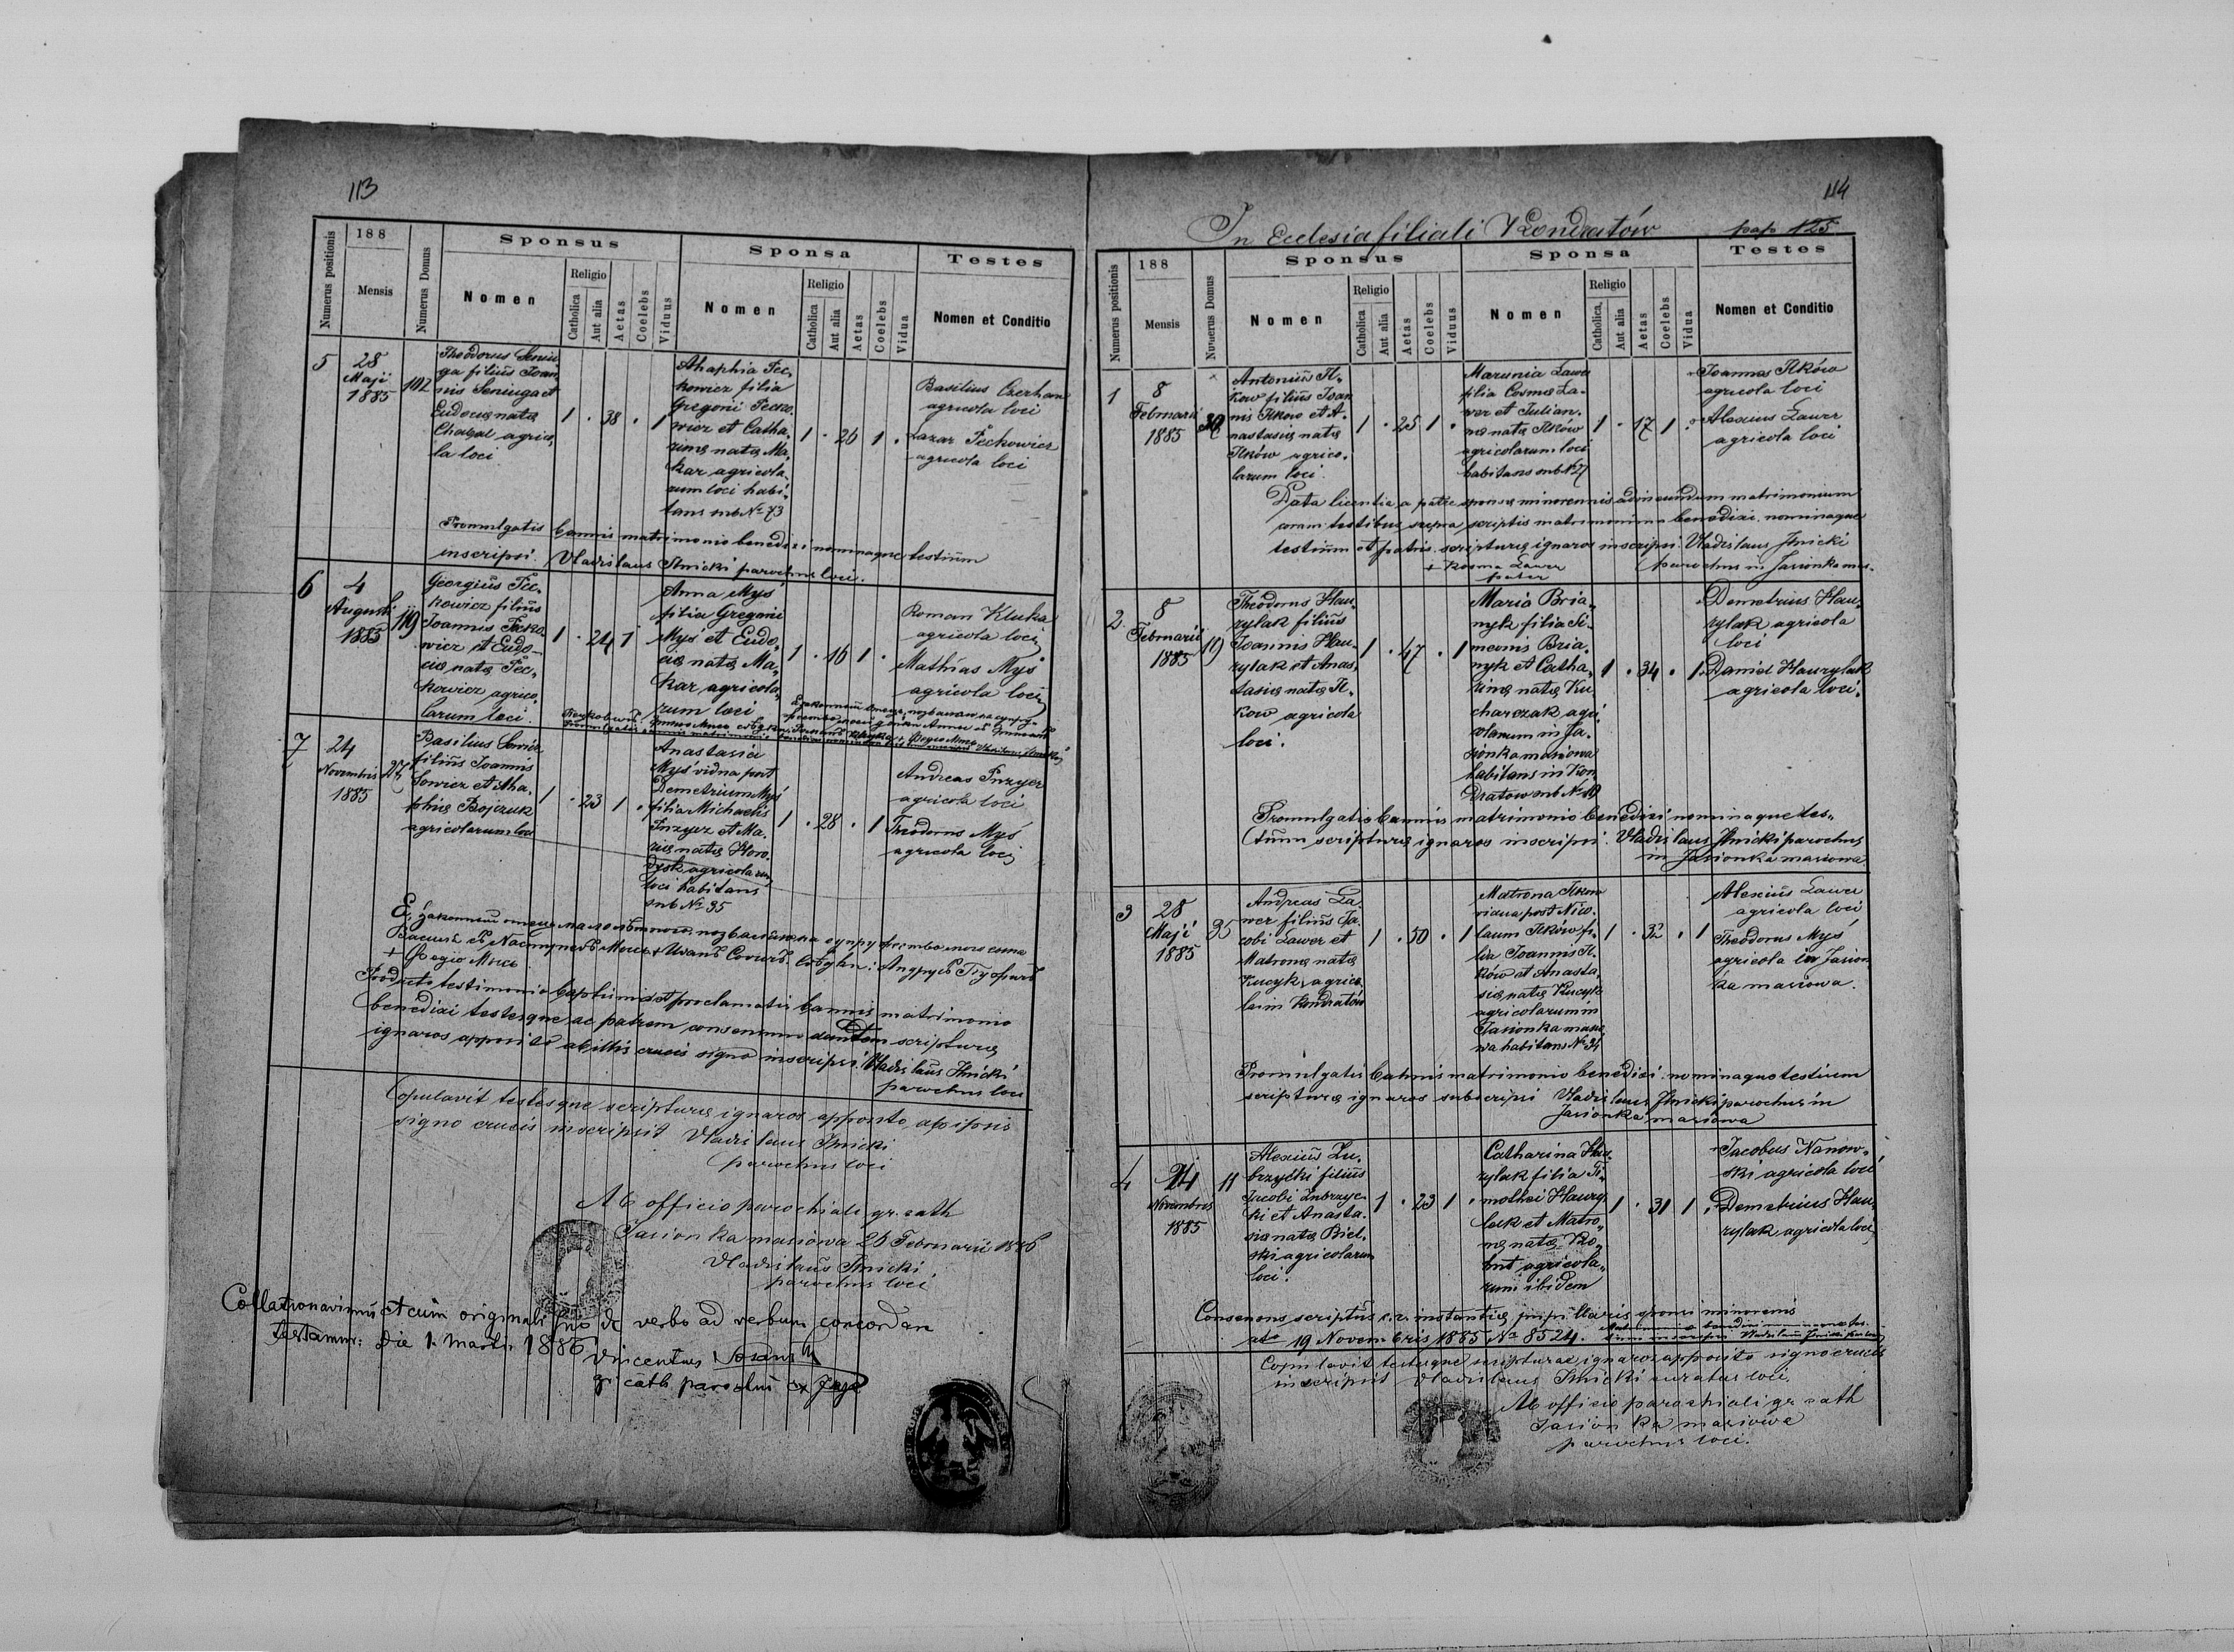 113
Numerus positionis
188
Mensis
Numerus Domus
Sponsus
Nomen
Religio
Catholica
Aut alia
Aetas
Coelebs
Viduus
Sponsa
Nomen
Religio
Catholica
Aut alia
Aetas
Coelebs
Vidua
Testes
Nomen et Conditio
5
28
Maji
1885
102
Theodorus Seniu-
ga filius Joan
nis Seniuga et
Eudociæ natæ
agrico,
la loci
1 . 38 . 1
Ahaphia Pec-
kowicz filia
Gregorii Pecko-
wicz et Catha,
rinæ natæ Ma,
kar agricola-
rum loci habi,
tans sub № 73
1 . 26 1 .
Basilius Czerhan
agricola loci
Lazar Peckowicz
agricola loci
Promulgatis bannis matrimonio benedixi nominaque testium
inscripsi. Vladislaus Ilnicki parochus loci.
6
4
Augusti
1885
119
Georgius Pec-
kowicz filius
Joannis Pecko-
wicz et Eudo-
ciæ natæ Pec,
kowicz agrico,
larum loci.
1 . 24 1
Anna Myś
filia Gregorii
Myś et Eudo,
ciæ natæ Ma,
kar agricola,
rum loci
1 . 16 1 .
Roman Kluka
agricola loci
Mathias Myś
agricola loci
7
24
Novembris
1885
27
Basilius Sowicz
filius Joannis
Sowicz et Aha,
phiæ Bojczuk
agricolarum loci
1 . 23 1 .
Anastasia
Myś vidua post
Demetrium Myś
filia Michaelis
et Ma.
riæ natæ Horo-
dysk agricolarum
loci habitans
sub № 35
1 . 28 . 1
Andreas
agricola loci
Theodorus Myś
agricola loci
Producto testimonio baptismi et proclamatis bannis matrimonio
benedixi testesque ac patrem consensum dantem scripturæ
ignaros apposito ab illis crucis signo inscripsi. Vladislaus Ilnicki
parochus loci
Copulavit testesque scripturæ ignaros apposito ab ipsis
signo crucis inscripsit Vladislaus Ilnicki
parochus loci
Ab officio parochiali gr. cath
Jasionka masiowa 26 Februarii 1886
Vladislaus Ilnicki
parochus loci
Collationavimus et cum originali suo de verbo ad verbum concordare
testamur: Die 1 Martii 1886
Vincentius
gr cath parochus
114
In Ecclesia filiali Kondratów
pap 125
Numerus positionis
188
Mensis
Numerus Domus
Sponsus
Nomen
Religio
Catholica
Aut alia
Aetas
Coelebs
Viduus
Sponsa
Nomen
Religio
Catholica
Aut alia
Aetas
Coelebs
Vidua
Testes
Nomen et Conditio
1
8
Februarii
1885
Antonius Il-
kow filius Joan
nis Ilkow et A-
nastasiæ natæ
Ilków agrico,
larum loci.
1 . 25 1 .
Marunia Lawer
filia Cosmæ La-
wer et Julian-
næ natæ Ilków
agricolarum loci
habitans sub № 27
1 . 17 1 .
Joannes Ilków
agricola loci
Alexius Lawer
agricola loci
Data licentia a patre sponsæ minorennis ad ineundum matrimonium
coram testibus supra scriptis matrimonium benedixi nominaque
testium et patris scripturæ ignaros inscripsi Vladislaus Ilnicki
+ Kosma Lawer parochus in Jasionka mas.
pater
2.
8
Februarii
1885
19
Theodorus Hau-
rylak filius
Joannis Hau-
rylak et Anas,
tasiæ natæ Il-
kow agricola
loci.
1 . 47 . 1
Maria Bria-
nyk filia Si-
meonis Bria-
nyk et Catha-
rinæ natæ Ku
charczak agri,
colarum in Ja-
sionka masiowa
habitans in Kon
dratow sub № 19
1 . 34 . 1
Demetrius Hau-
rylak agricola
loci
Daniel Hawrylak
agricola loci.
Promulgatis bannis matrimonio benedixi nominaque tes-
tium scripturæ ignaros inscripsi. Vladislaus Ilnicki parochus
in Jasionka masiowa
3
28
Maji
1885
35
Andreas La-
wer filius Ja-
cobi Lawer et
Matronæ natæ
Kucyk, agrico-
la in Kondratów
1 . 50 . 1
Matrona Ilkow
vidua post Nico-
laum Ilków fi-
lia Joannis Il-
ków et Anasta-
siæ natæ Kucyk
agricolarum in
Jasionka masio
wa habitans № 34
1 . 32 . 1
Alexius Lawer
agricola loci
Theodorus Myś
agricola in Jasion-
ka masiowa.
Promulgatis bannis matrimonio benedixi nominaque testium
scripturæ ignaros subscripsi Vladislaus Ilnicki parochus in
Jasionka masiowa
4
24
Novembris
1885
11
Alexius Zu-
brzycki filius
Jacobi Zubrzyc-
ki et Anasta-
siæ natæ Biel-
ski agricolarum
loci.
1 . 23 1 .
Catharina Hau-
rylak filia Ti-
mothei Haury-
lak et Matro-
næ natæ Ko-
but agricola-
rum ibidem
1 . 31 1 .
Jacobus Nanow-
ski agricola loci
Demetrius Hau-
rylak agricola loci
Consensus scriptus c.r. instantiæ pupillaris sponsi minorennis
dto 19 Novembris 1885 № 8524.
Copulavit testesque scripturæ ignaros apposito signo crucis
inscripsit Vladislaus Ilnicki curatus loci.
Ab officio parochiali gr cath
Jasionka masiowa
parochus loci.